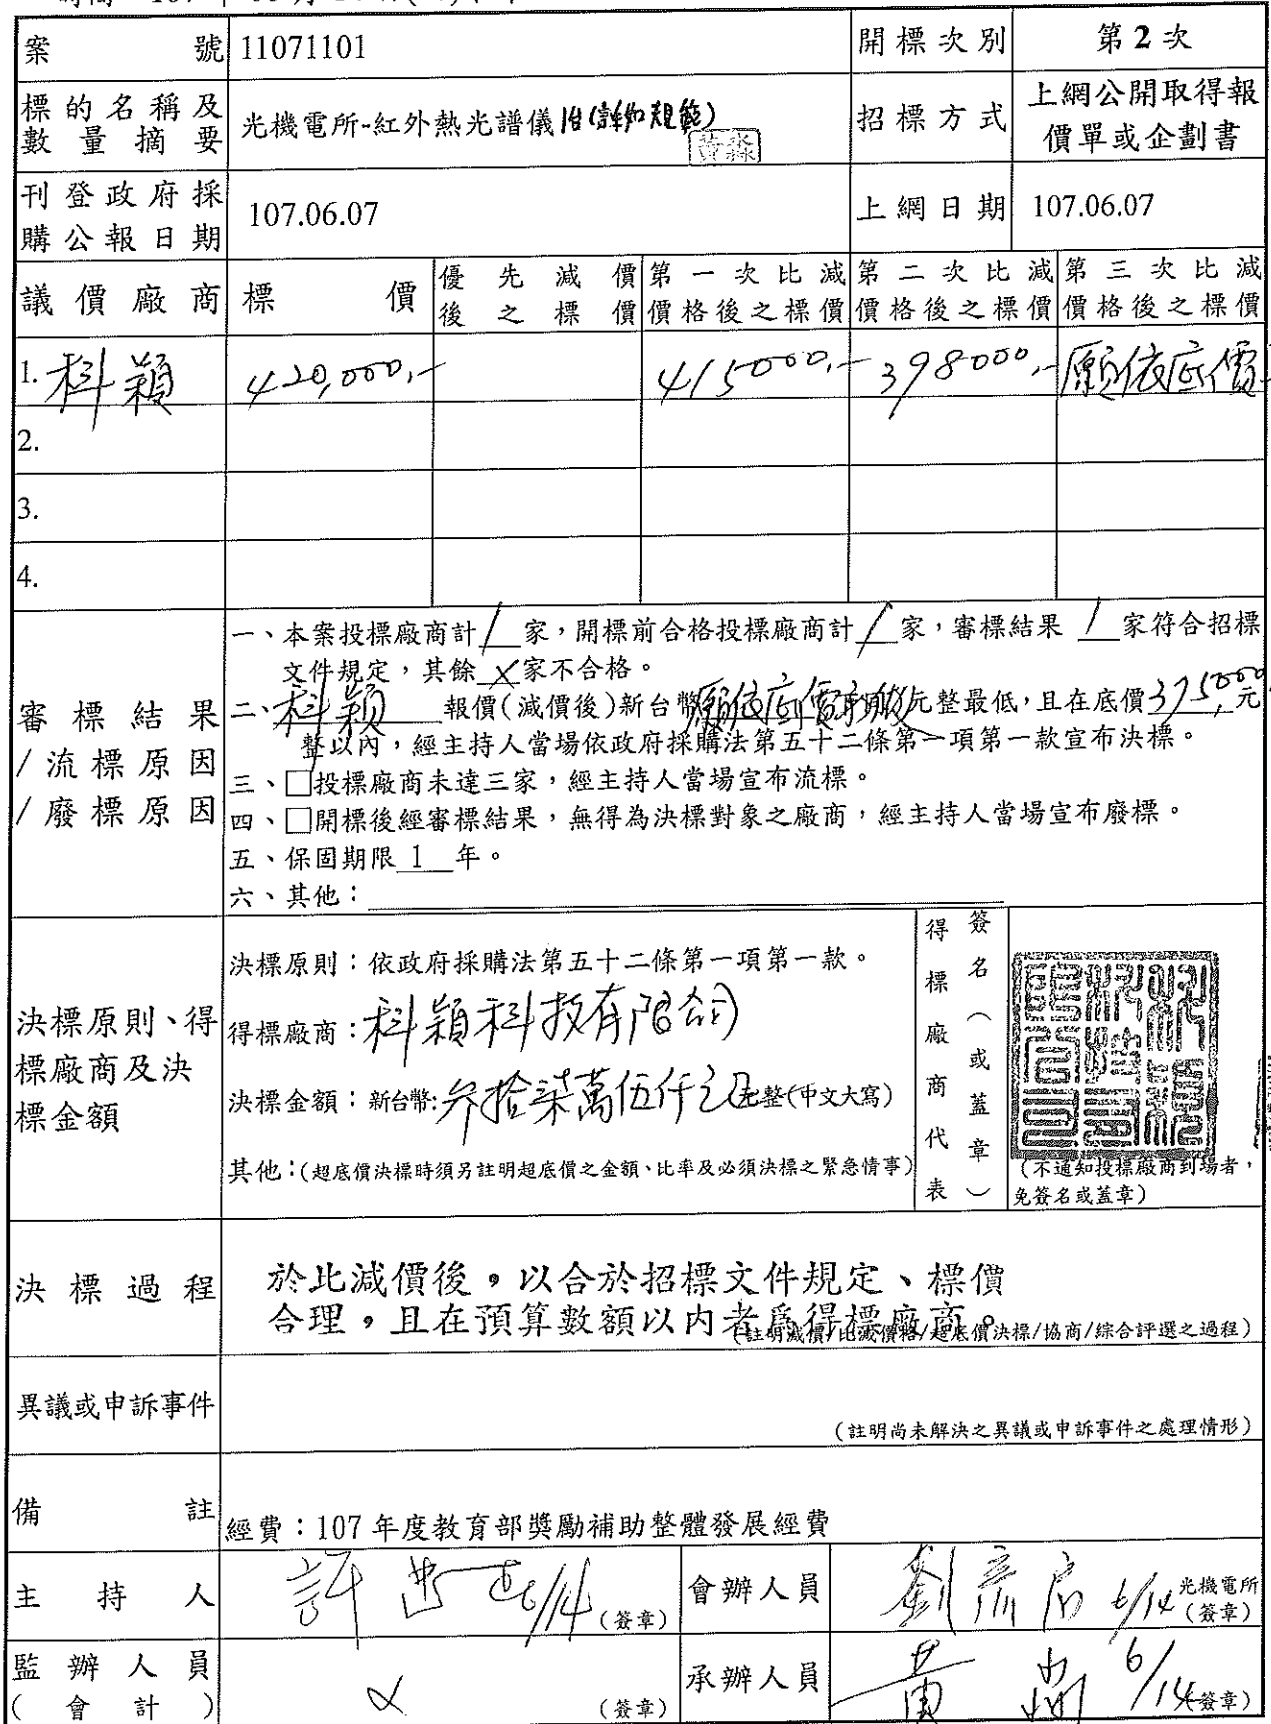 案號 11071101 開標次別 第2次
標的名稱及數量摘要 光機電所-紅外熱光譜儀1台(詳如規範) 招標方式 上網公開取得報價單或企劃書
黃淼
刊登政府採購公報日期 107.06.07 上網日期 107.06.07
議價廠商 標價 優先減價後之標價 第一次比減價格後之標價 第二次比減價格後之標價 第三次比減價格後之標價
1. 科穎 420,000.- 415000.- 398000.- 願依底價
2.
3.
4.
審標結果/流標原因/廢標原因
一、本案投標廠商計 1 家,開標前合格投標廠商計 1 家,審標結果 1 家符合招標
文件規定,其餘 X 家不合格。
二、科穎 報價(減價後)新台幣願依底價承做元整最低,且在底價375000元
整以內,經主持人當場依政府採購法第五十二條第一項第一款宣布決標。
三、□投標廠商未達三家,經主持人當場宣布流標。
四、□開標後經審標結果,無得為決標對象之廠商,經主持人當場宣布廢標。
五、保固期限 1 年。
六、其他:
決標原則、得標廠商及決標金額
決標原則:依政府採購法第五十二條第一項第一款。
得標廠商:科穎科技有限公司
決標金額:新台幣:參拾柒萬伍仟元整(中文大寫)
其他:(超底價決標時須另註明超底價之金額、比率及必須決標之緊急情事)
得標廠商代表簽名(或蓋章)
(不通知投標廠商到場者,
免簽名或蓋章)
決標過程
於比減價後,以合於招標文件規定、標價
合理,且在預算數額以內者為得標廠商。
(註明減價/比減價格/超底價決標/協商/綜合評選之過程)
異議或申訴事件
(註明尚未解決之異議或申訴事件之處理情形)
備註 經費:107 年度教育部獎勵補助整體發展經費
主持人 許 6/14 (簽章) 會辦人員 劉 6/14 光機電所 (簽章)
監辦人員(會計) X (簽章) 承辦人員 黃 6/14 (簽章)